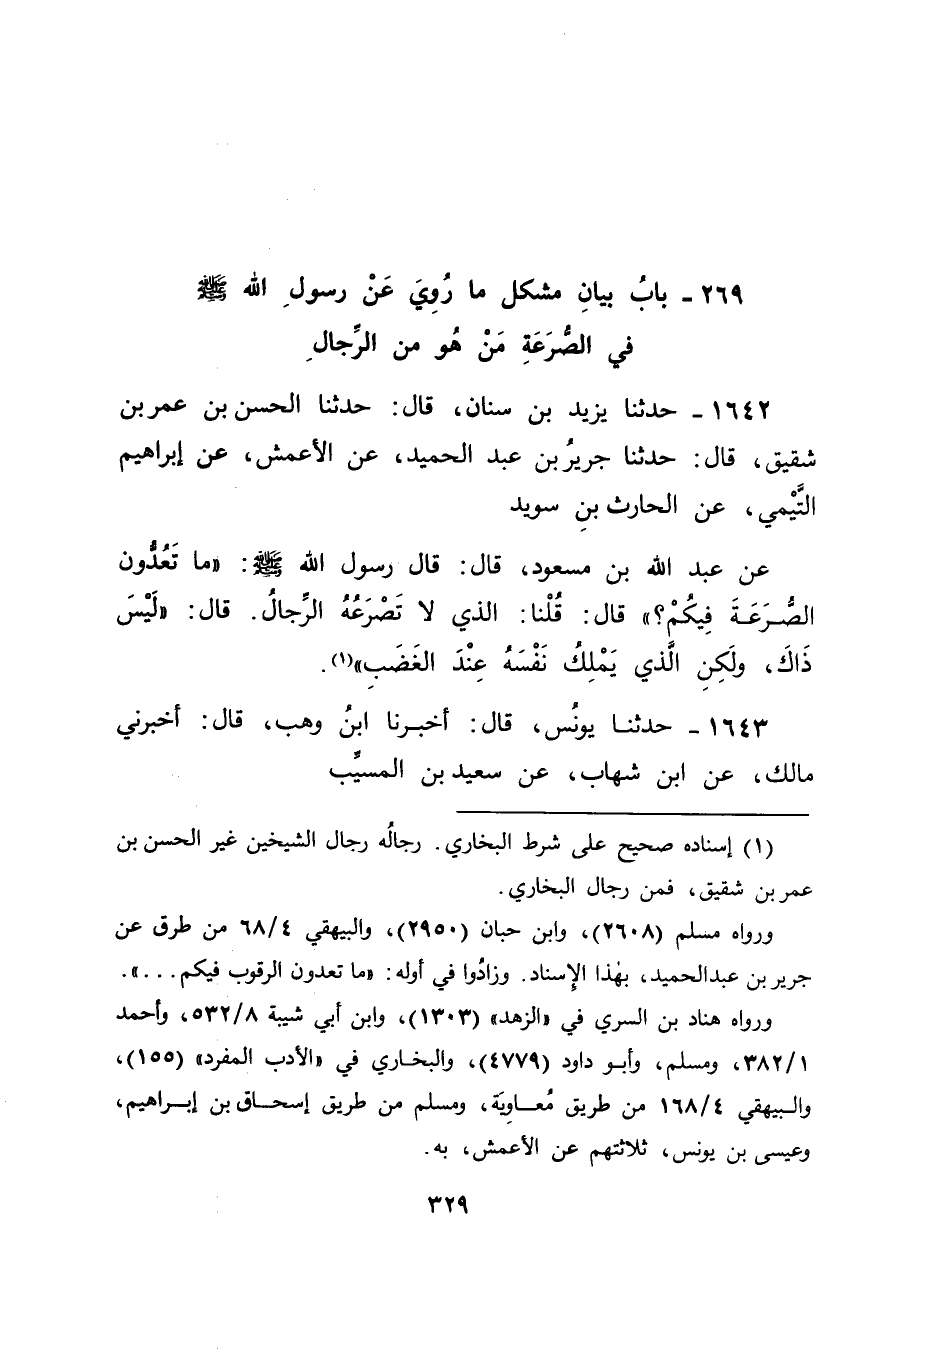 ٢٦٩ ـ بابُ بيانِ مشكل ما رُوِيَ عَنْ رسولِ الله ﷺ
في الصُّرَعَةِ مَنْ هُو من الرِّجالِ
١٦٤٢ ـ حدثنا يزيد بن سنان، قال: حدثنا الحسن بن عمر بن
شقيق، قال: حدثنا جريرُ بن عبد الحميد، عن الأعمش، عن إبراهيم
التَّيْمي، عن الحارث بنِ سويد
عن عبد الله بن مسعود، قال: قال رسول الله ﷺ: «ما تَعُدُّون
الصُّرَعَةَ فِيكُمْ؟» قال: قُلْنا: الذي لا تَصْرَعُهُ الرِّجالُ. قال: «لَيْسَ
ذَاكَ، ولَكِنِ الَّذي يَمْلِكُ نَفْسَهُ عِنْدَ الغَضَبِ»(١).
١٦٤٣ ـ حدثنا يونُس، قال: أخبرنا ابنُ وهب، قال: أخبرني
مالك، عن ابن شهاب، عن سعيد بن المسيِّب
(١) إسناده صحيح على شرط البخاري. رجالُه رجال الشيخين غير الحسن بن
عمر بن شقيق، فمن رجال البخاري.
ورواه مسلم (٢٦٠٨)، وابن حبان (٢٩٥٠)، والبيهقي ٦٨/٤ من طرق عن
جرير بن عبدالحميد، بهٰذا الإِسناد. وزادُوا في أوله: «ما تعدون الرقوب فيكم...».
ورواه هناد بن السري في «الزهد» (١٣٠٣)، وابن أبي شيبة ٥٣٢/٨، وأحمد
٣٨٢/١، ومسلم، وأبو داود (٤٧٧٩)، والبخاري في «الأدب المفرد» (١٥٥)،
والبيهقي ١٦٨/٤ من طريق مُعاوِيَة، ومسلم من طريق إسحاق بن إبراهيم،
وعيسى بن يونس، ثلاثتهم عن الأعمش، به.
٣٢٩